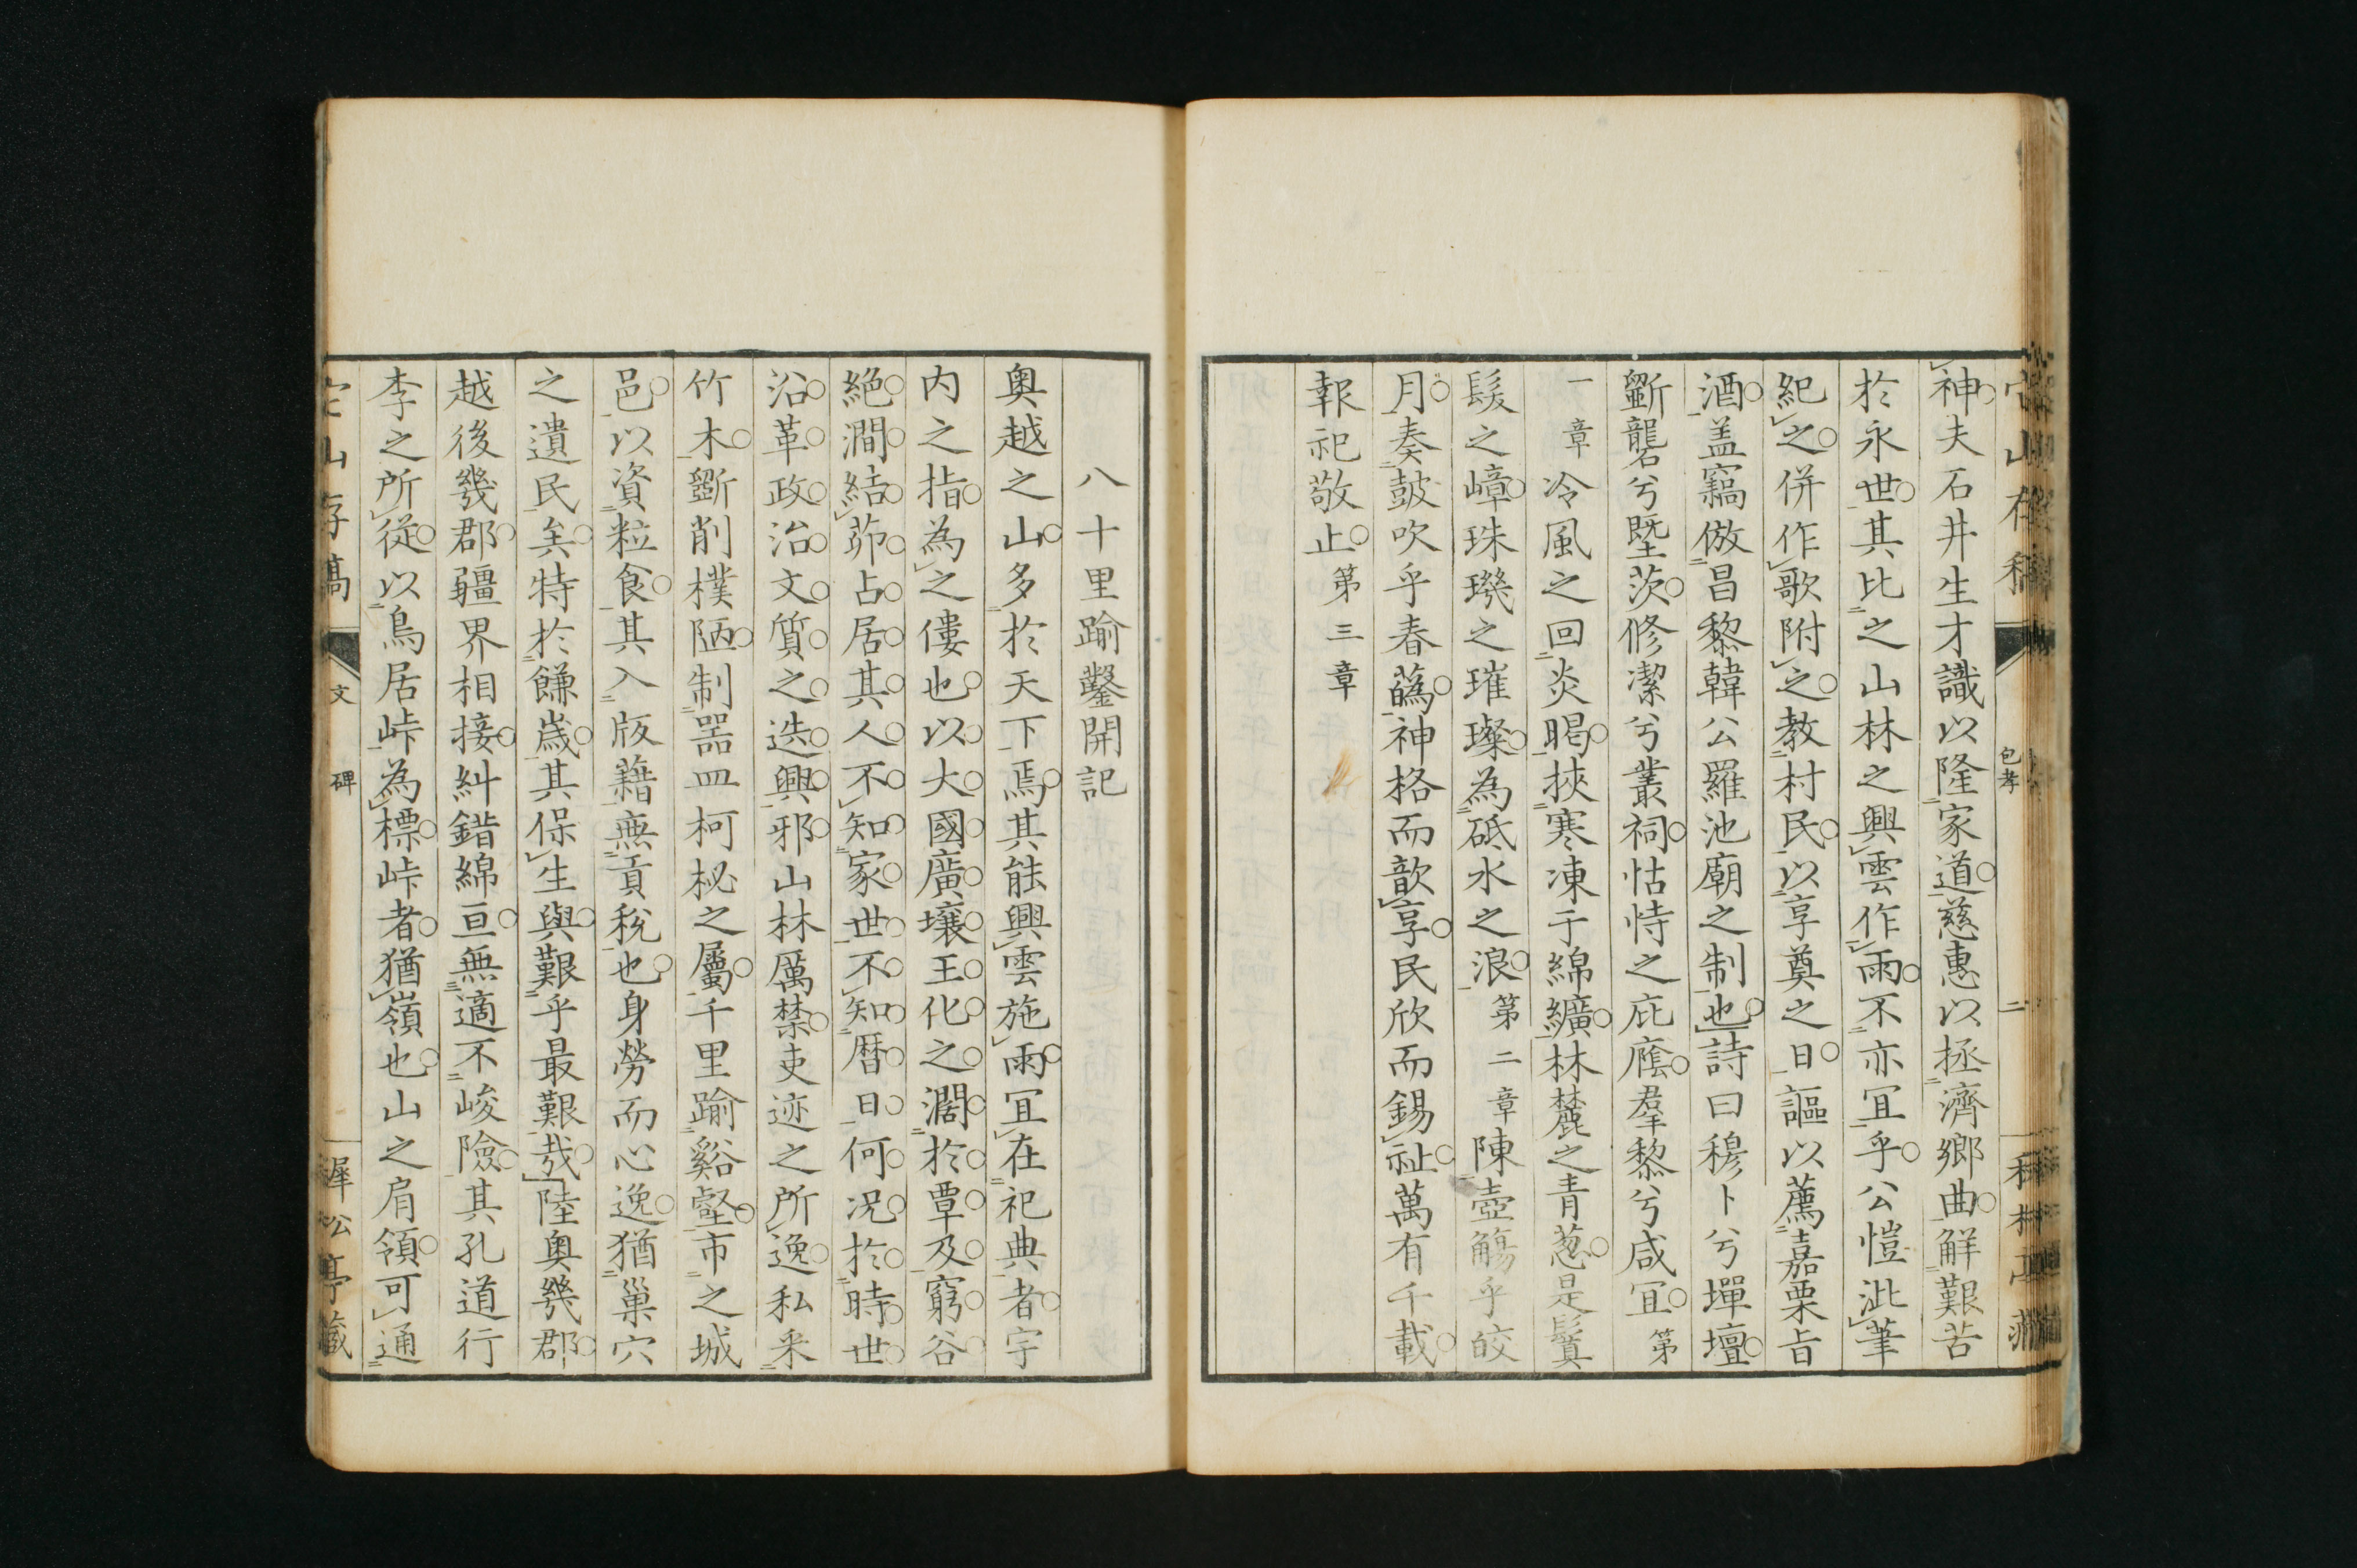 神夫石井生才識以隆家道慈惠以拯濟鄉曲解艱苦
於永世其比之山林之興雲作雨不亦宜乎公愷泚筆
紀之併作歌附之教村民以享奠之日謳以薦嘉栗旨
酒盖竊倣昌黎韓公羅池廟之制也詩曰穆卜兮墠壇
斵礱兮塈茨修潔兮叢祠怙恃之庇廕羣黎兮咸宜第
一章冷風之回炎暍挾寒凍于綿纊林麓之青葱是鬒
髮之嶂珠璣之璀璨為砥水之浪第二章陳壺觴乎皎
月奏鼓吹乎春蔿神格而歆享民欣而錫祉萬有千載
報祀敬止第三章
二
八十里踰鑿開記
奧越之山多於天下焉其能興雲施雨宜在祀典者宇
内之指為之僂也以大國廣壤王化之濶於覃及窮谷
絕澗結茆占居其人不知家世不知暦日何況於時世
沿革政治文質之迭興邪山林厲禁吏迹之所逸私采
竹木斵削樸陋制器皿柯柲之屬千里踰谿壑市之城
邑以資粒食其入版藉無貢稅也身勞而心逸猶巢穴
之遺民矣特於饑歳其保生與艱乎最艱哉陸奧幾郡
越後幾郡疆界相接糾錯綿亘無適不峻險其孔道行
李之所從以鳥居峠為標峠者猶嶺也山之肩領可通
文 碑